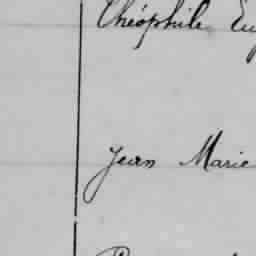 Théophile Eug
Jean Marie